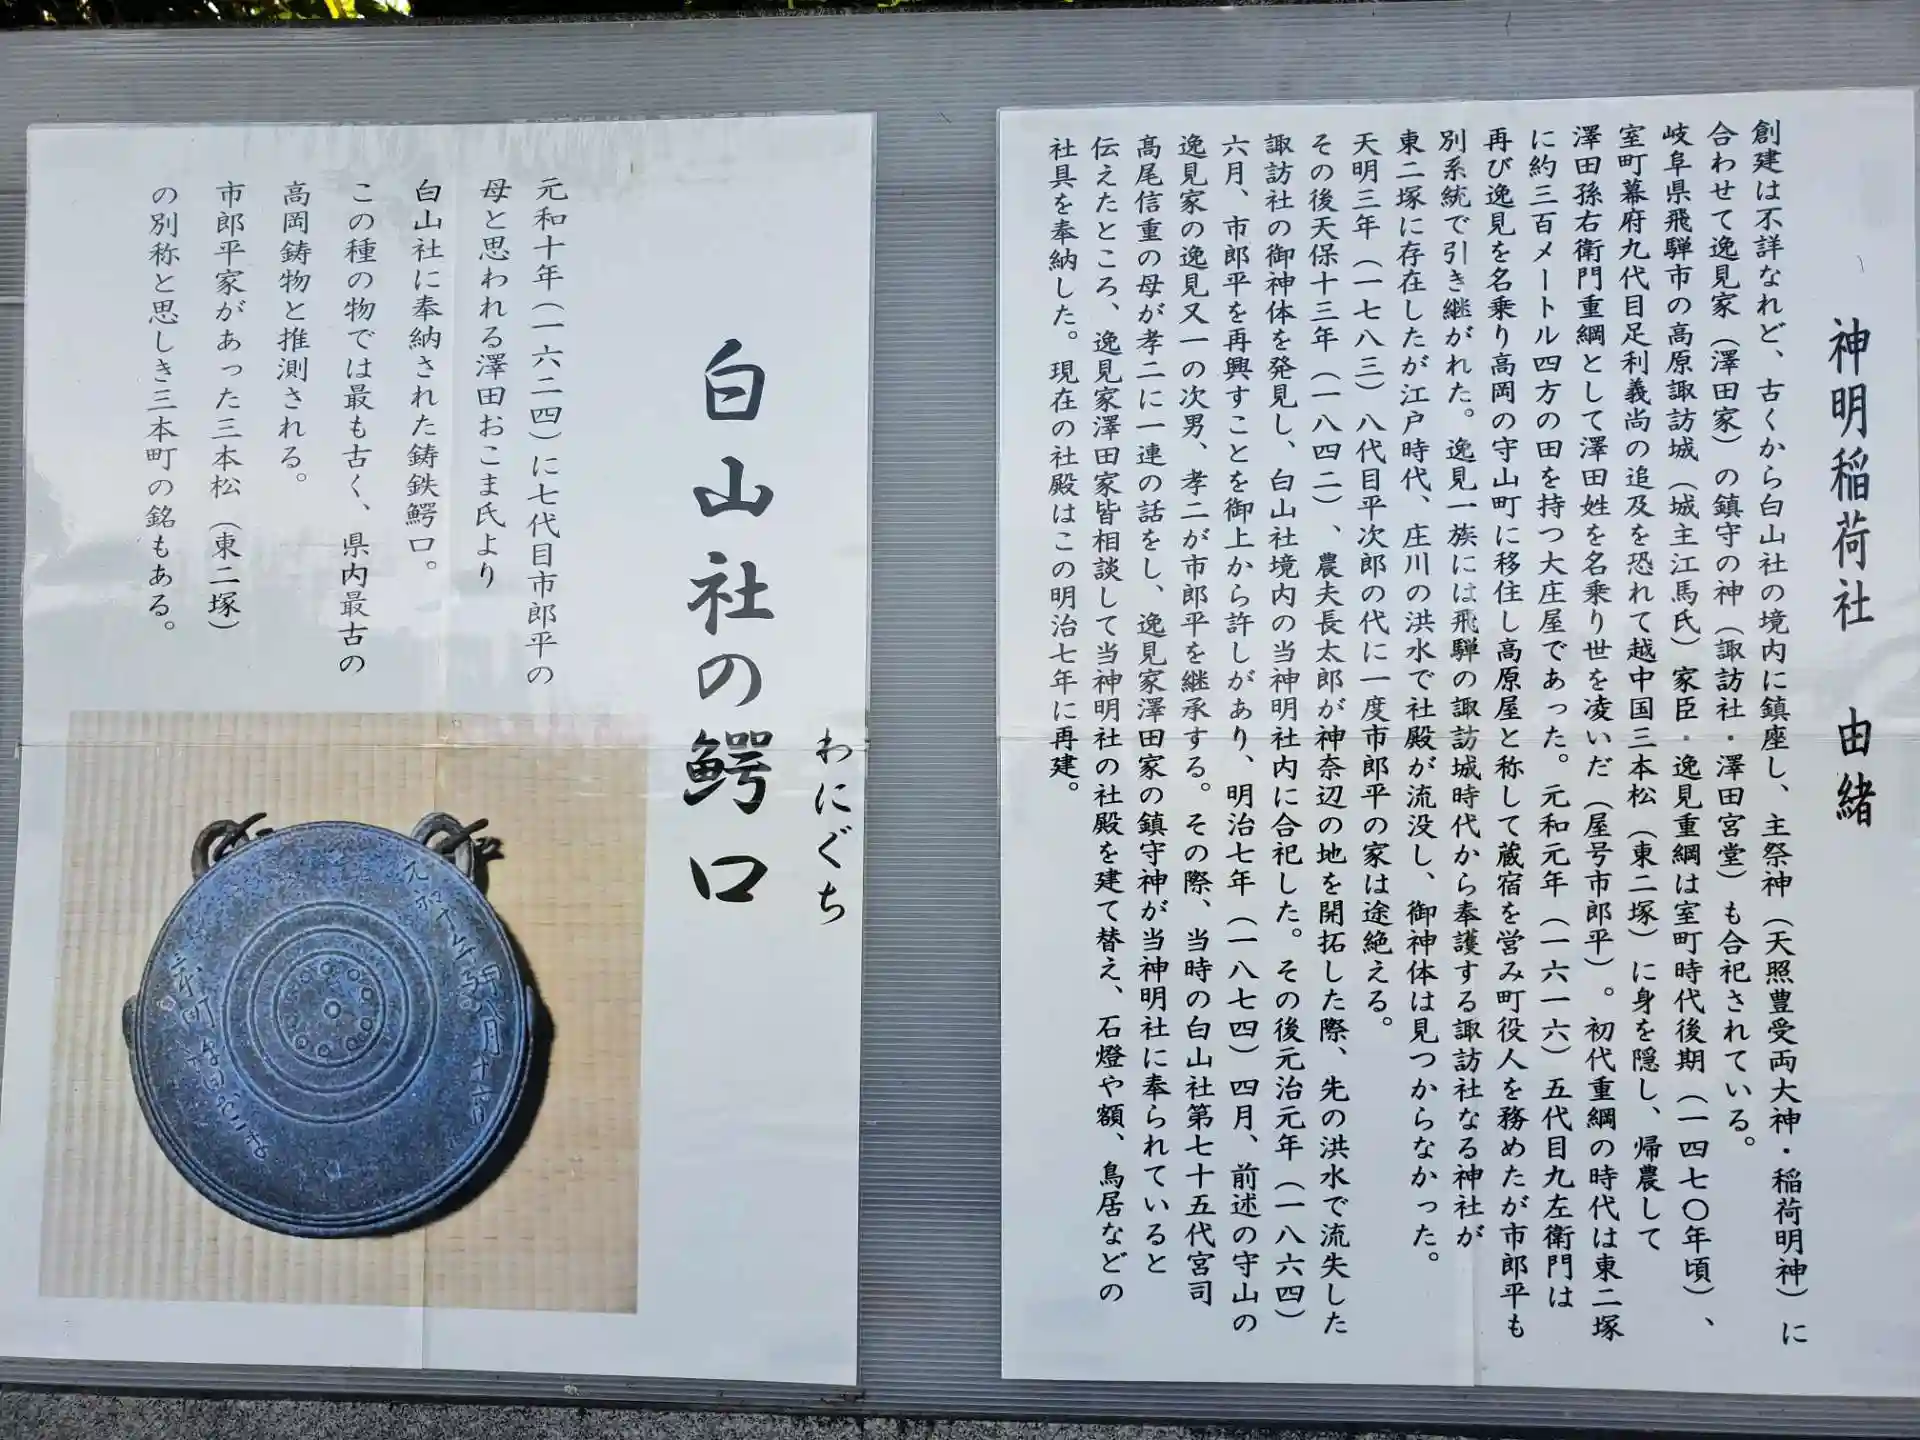 神明稲荷社　由緒
創建は不詳なれど、古くから白山社の境内に鎮座し、主祭神（天照豊受両大神・稲荷明神）に
合わせて逸見家（澤田家）の鎮守の神（諏訪社・澤田宮堂）も合祀されている。
岐阜県飛騨市の高原諏訪城（城主江馬氏）家臣・逸見重綱は室町時代後期（一四七〇年頃）、
室町幕府九代目足利義尚の追及を恐れて越中国三本松（東二塚）に身を隠し、帰農して
澤田孫右衛門重綱として澤田姓を名乗り世を凌いだ（屋号市郎平）。初代重綱の時代は東二塚
に約三百メートル四方の田を持つ大庄屋であった。元和元年（一六一六）五代目九左衛門は
再び逸見を名乗り高岡の守山町に移住し高原屋と称して蔵宿を営み町役人を務めたが市郎平も
別系統で引き継がれた。逸見一族には飛騨の諏訪城時代から奉護する諏訪社なる神社が
東二塚に存在したが江戸時代、庄川の洪水で社殿が流没し、御神体は見つからなかった。
天明三年（一七八三）八代目平次郎の代に一度市郎平の家は途絶える。
その後天保十三年（一八四二）、農夫長太郎が神奈辺の地を開拓した際、先の洪水で流失した
諏訪社の御神体を発見し、白山社境内の当神明社内に合祀した。その後元治元年（一八六四）
六月、市郎平を再興すことを御上から許しがあり、明治七年（一八七四）四月、前述の守山の
逸見家の逸見又一の次男、孝二が市郎平を継承する。その際、当時の白山社第七十五代宮司
高尾信重の母が孝二に一連の話をし、逸見家澤田家の鎮守神が当神明社に奉られていると
伝えたところ、逸見家澤田家皆相談して当神明社の社殿を建て替え、石燈や額、鳥居などの
社具を奉納した。現在の社殿はこの明治七年に再建。
わにぐち
白山社の鰐口
元和十年（一六二四）に七代目市郎平の
母と思われる澤田おこま氏より
白山社に奉納された鋳鉄鰐口。
この種の物では最も古く、県内最古の
高岡鋳物と推測される。
市郎平家があった三本松（東二塚）
の別称と思しき三本町の銘もある。
元和十年
八月十六日